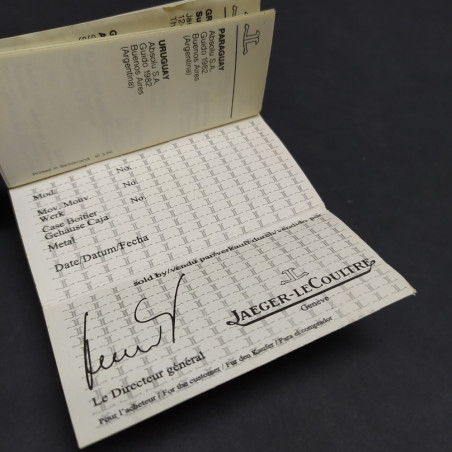 PARAGUAY
Absolu S.A.
Guido 1982
Buenos Aires
(Argentina)
URUGUAY
Absolu S.A.
Guido 1982
Buenos Aires
(Argentina)
Mod. No.
Mov. Mouv. No.
Werk
Case Boîtier No.
Gehäuse Caja
Metal
Date/Datum/Fecha
Sold by/vendu par/verkauft durch/vendido por
JAEGER-LECOULTRE
Genève
Le Directeur général
Pour l'acheteur / For the customer / Für den Kaufer / Para el comprador